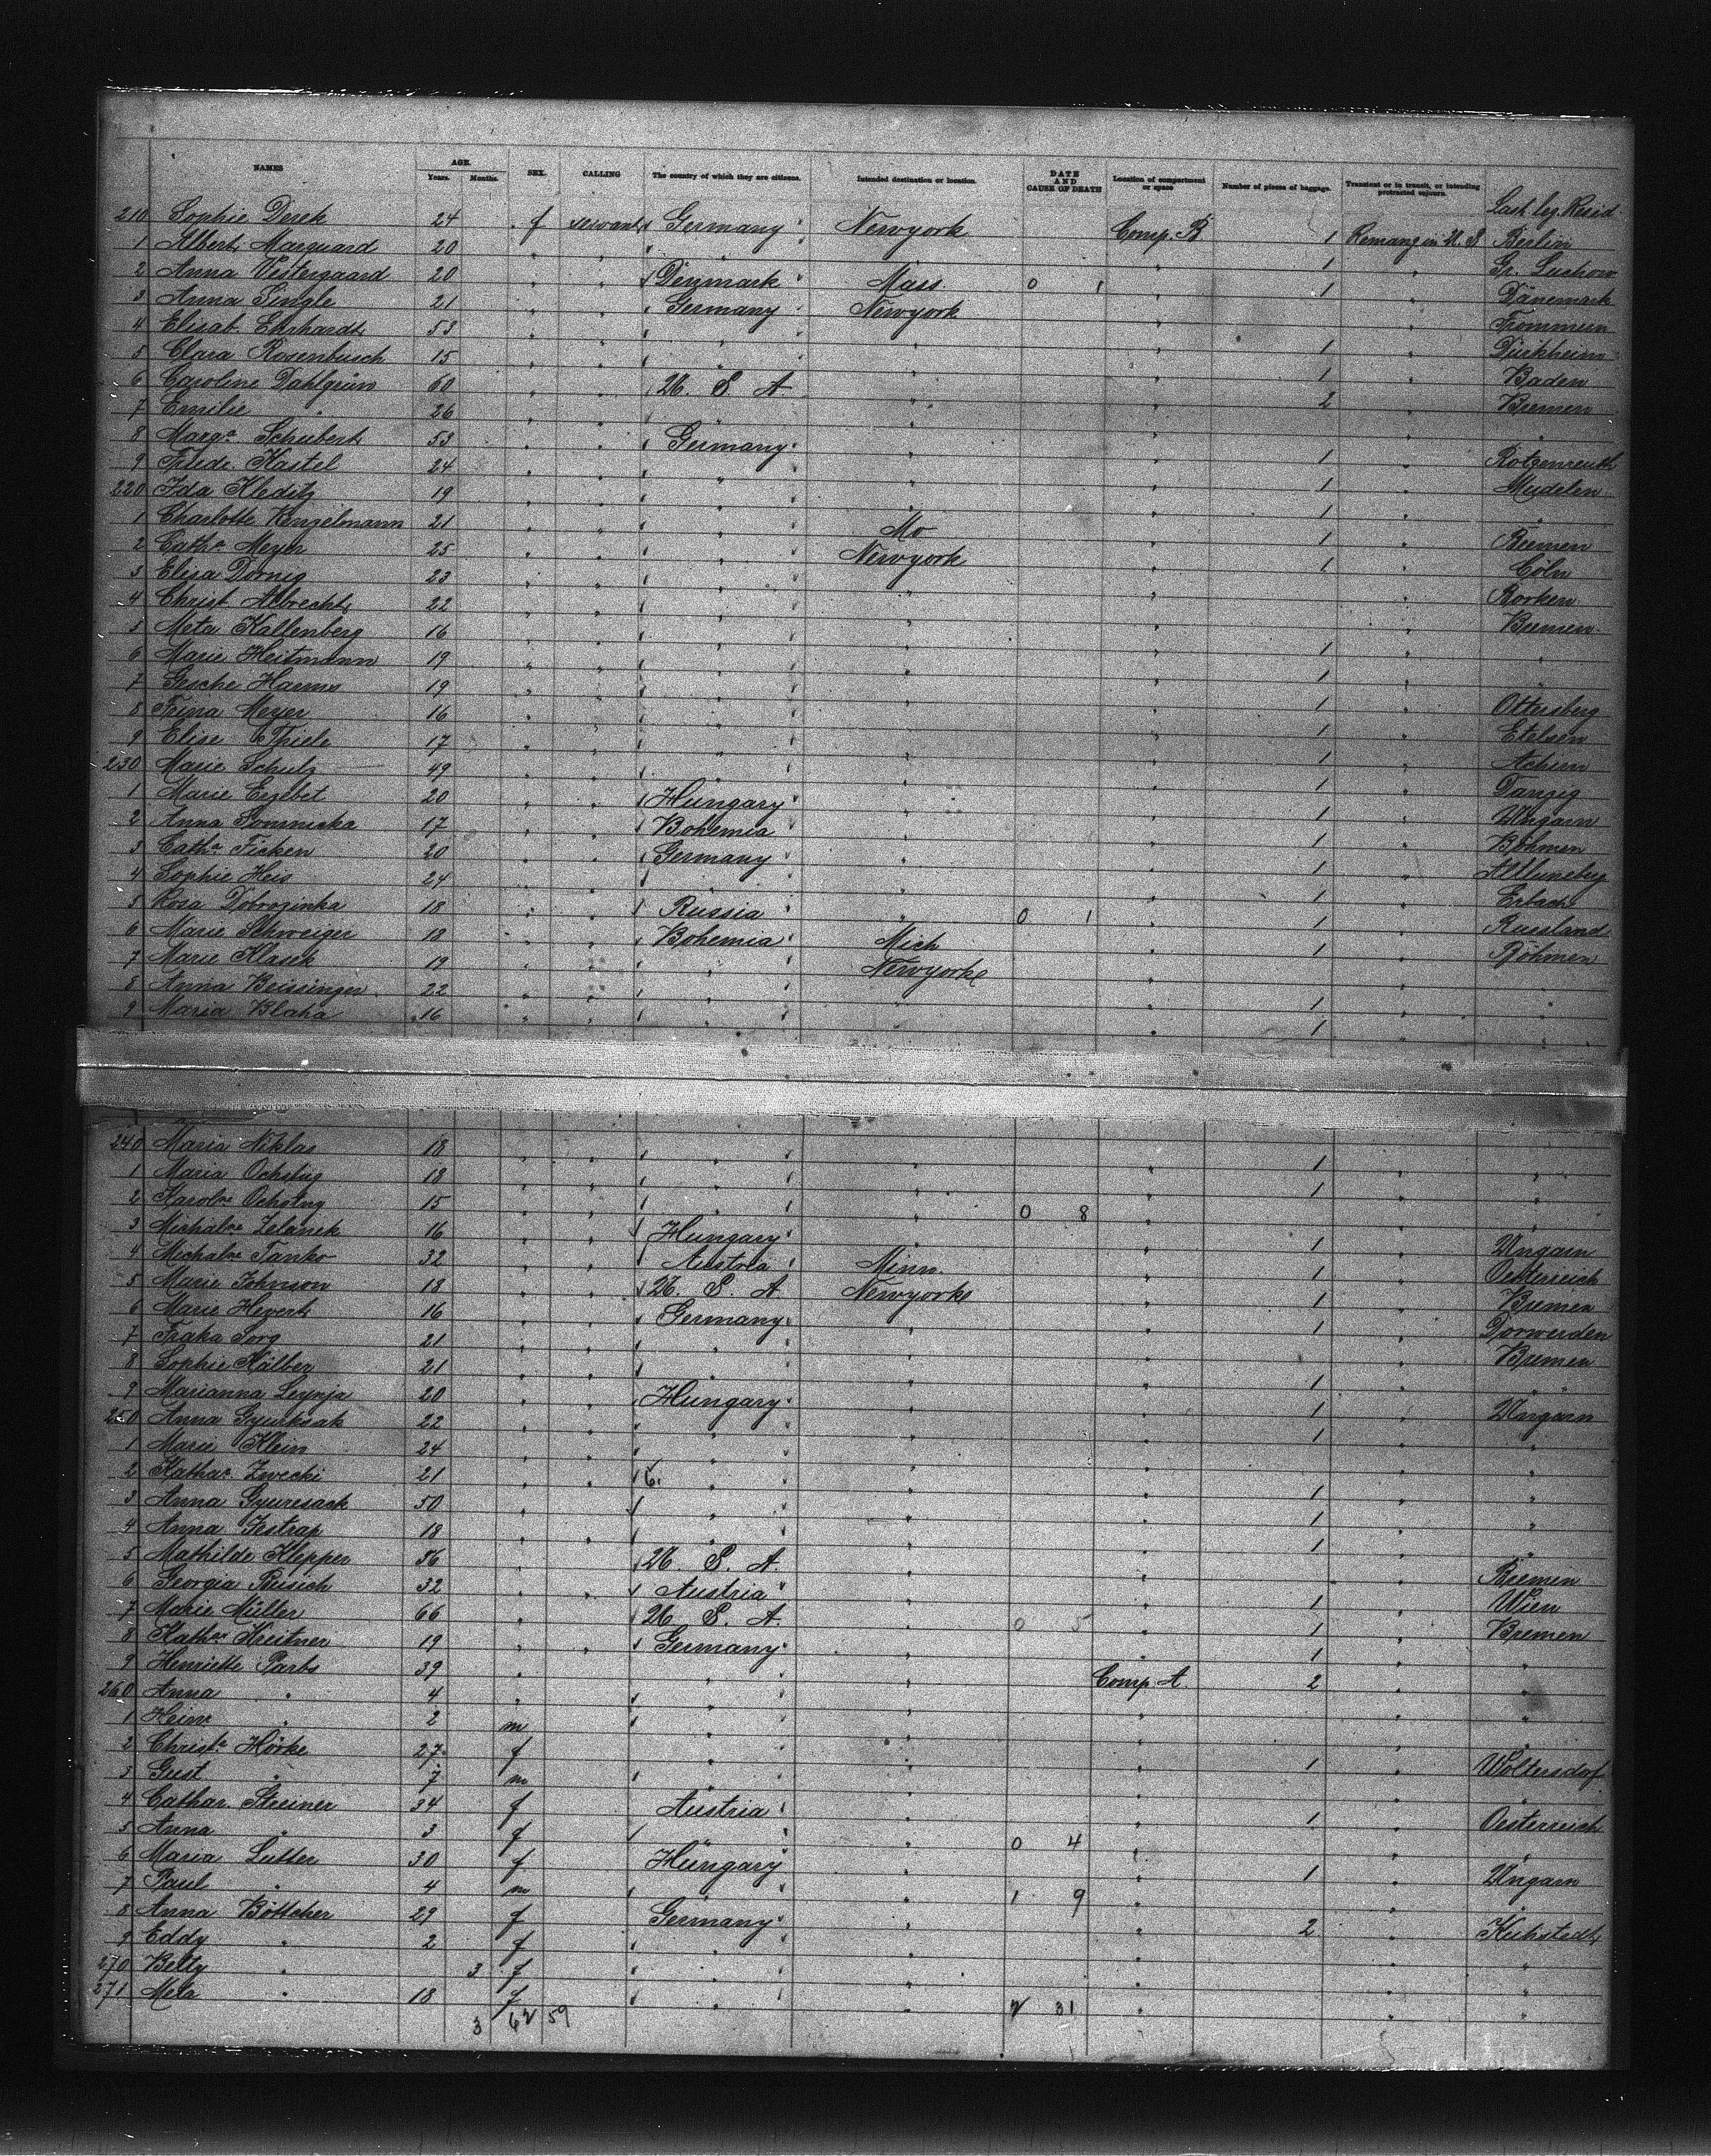 NAMES AGE. Years. Months. SEX. CALLING The country of which they are citizens. Intended destination or location. DATE AND CAUSE OF DEATH Location of compartment or space Number of pieces of baggage. Transient or in transit, or intending protracted sojourn. Last leg. Resid
210 Sophie Derek 24 f servant Germany Newyork Comp. B 1 Remang in U. S Berlin
1 Albert Marquard 20 " " " " " 1 " Gr. Luchow
2 Anna Vestergaard 20 " " Denmark Mass 0 1 " 1 " Dänemark
3 Anna Single 21 " " Germany Newyork " Frommern
4 Elisab. Ehrhardt 53 " " " " " 1 " Dürkheim
5 Clara Rosenbusch 15 " " " " " 1 " Baden
6 Caroline Dahlgrün 60 " " U. S. A. " " 2 " Bremen
7 Emilie " 26 " " " " " " "
8 Marga Schubert 53 " " Germany " " 1 " Rotzenreuth
9 Friedr. Kastel 24 " " " " " 1 " Mudelen
220 Ida Kleditz 19 " " " " " 1 " "
1 Charlotte Benzelmann 21 " " " Mo " 1 " Bremen
2 Catha Meyer 25 " " " Newyork " 1 " Cöln
3 Elisa Dornig 23 " " " " " " Borken
4 Christ. Albrecht 22 " " " " " " Bremen
5 Meta Kallenberg 16 " " " " " 1 " "
6 Marie Heitmann 19 " " " " " 1 " "
7 Gesche Harms 19 " " " " " 1 " Ottersberg
8 Trina Meyer 16 " " " " " 1 " Etelsen
9 Elise Thiele 17 " " " " " 1 " Achim
230 Marie Schulz 49 " " " " " 1 " Danzig
1 Marie Erzebet 20 " " Hungary " " 1 " Ungarn
2 Anna Somnicka 17 " " Bohemia " " 1 " Böhmen
3 Catha Ficken 20 " " Germany " " 1 " Altluneberg
4 Sophie Heis 24 " " " " " 1 " Erbach
5 Rosa Dobrozinka 18 " " Russia " 0 1 " 1 " Russland
6 Marie Schweiger 18 " " Bohemia Mich " 1 " Böhmen
7 Marie Klasek 19 " " " Newyork " " "
8 Anna Beissinger 22 " " " " " 1 " "
9 Maria Blaha 16 " " " " " 1 " "
240 Maria Niklas 18 " " " " " 1 " "
1 Maria Ochstug 18 " " " " " 1 " "
2 Karolne Ochstng 15 " " " " 0 8 " " "
3 Michalne Zelanek 16 " " Hungary " " 1 " Ungarn
4 Michalne Tanko 32 " " Austria Minn. " 1 " Oesterreich
5 Marie Johnson 18 " " U. S. A. Newyork " 1 " Bremen
6 Marie Hevert 16 " " Germany " " 1 " Dorwerden
7 Fraka Sorg 21 " " " " " " Bremen
8 Sophie Hälber 21 " " " " " 1 " "
9 Marianna Leynja 20 " " Hungary " " 1 " Ungarn
250 Anna Gyurksak 22 " " " " " 1 " "
1 Marie Klein 24 " " " " " " "
2 Kathar. Zwecki 21 " " " " " 1 " "
3 Anna Gyuresack 50 " " " " 1 " "
4 Anna Jestrap 18 " " " " " 1 " "
5 Mathilde Klepper 56 " U. S. A. " " " Bremen
6 Georgia Rusich 32 " " Austria " " 1 " Wien
7 Marie Müller 66 " U. S. A. " 0 5 " 1 " Bremen
8 Kathar Kreitner 19 " " Germany " " 1 " "
9 Henriette Parbs 39 " " " Comp. A 2 " "
260 Anna " 4 " " " " "
1 Heinr. " 2 m " " " "
2 Christa Hörke 27 f " " " 1 " Woltersdorf
3 Gust " 7 m " " " " "
4 Cathar. Streiner 34 f Austria " " 1 " Oesterreich
5 Anna " 3 f " " 0 4 " " "
6 Maria Lutter 30 f Hungary " " 1 " Ungarn
7 Paul " 4 m " " 1 9 " " "
8 Anna Böttcher 29 f Germany " " 2 " Kuhstedt
9 Eddy " 2 f " " " " "
270 Betty " 3 f " " " " "
271 Meta " 18 f " " 2 31 " " "
3 62 59